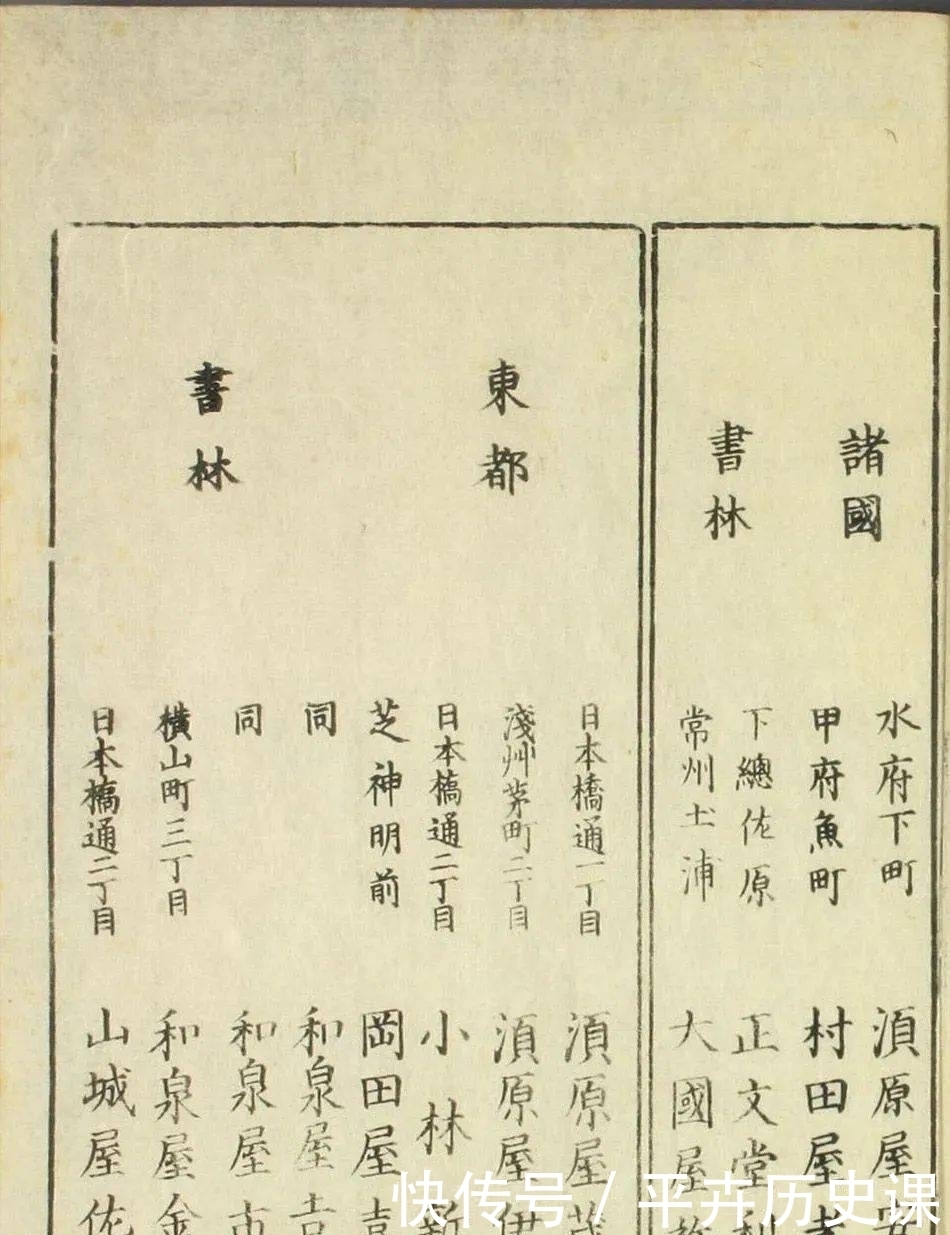 諸國
書林
水府下町 須原屋安
甲府魚町 村田屋孝
下總佐原 正文堂利
常州土浦 大國屋
東都
書林
日本橋通一丁目 須原屋茂
淺艸茅町二丁目 須原屋伊
日本橋通二丁目 小林新
芝神明前 岡田屋嘉
同 和泉屋吉
同 和泉屋市
横山町三丁目 和泉屋金
日本橋通二丁目 山城屋佐
快传号/平卉历史课